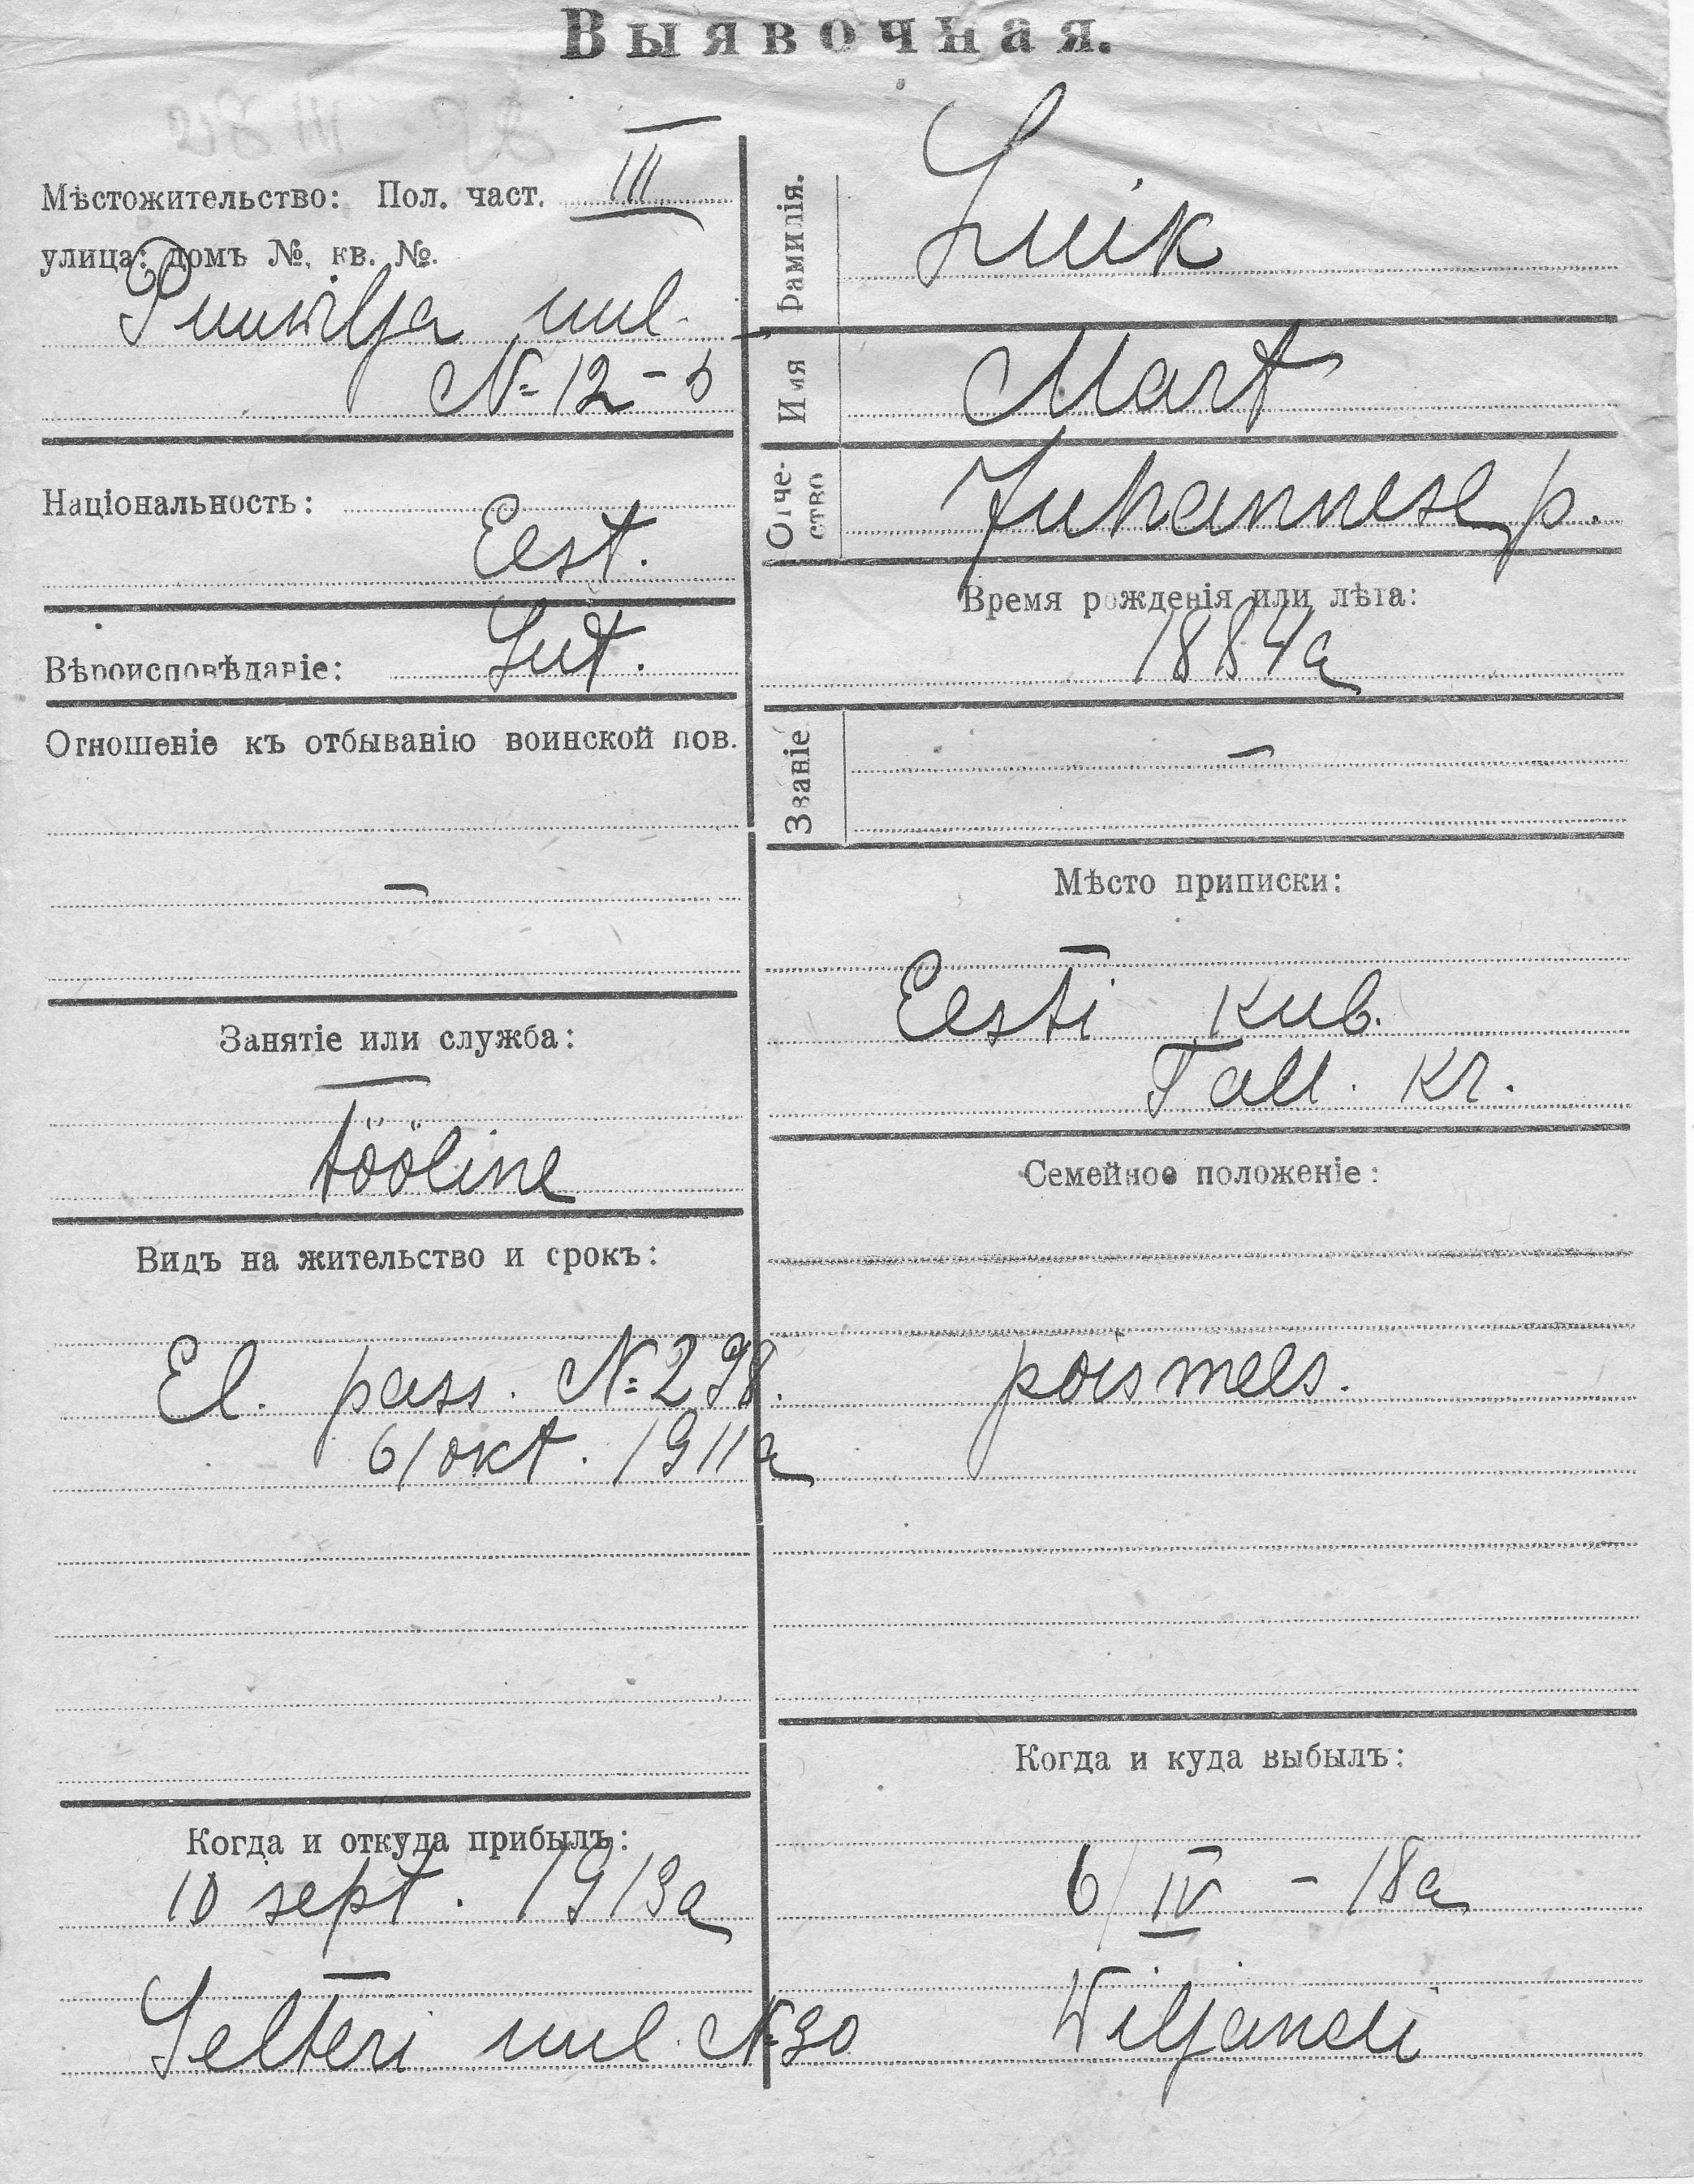 Выявочная.
Мѣстожительство: Пол. част. III
улица: домъ №, кв. №.
Puuwilja uul.
№ 12 – b
Національность:
Eest.
Вѣроисповѣданіе: Lut.
Отношеніе къ отбыванію воинской пов.
–
Занятіе или служба:
tööline
Видъ на жительство и срокъ:
El. pass. № 298.
6/окt. 1911 a
Когда и откуда прибылъ:
10 sept. 1913 a
Selteri uul. № 30
Фамилія.
Luik
Имя
Mart
Отче-
ство
Juhannese p.
Время рожденія или лѣта:
1884 a
Званіе
–
Мѣсто приписки:
Eesti kub.
Tall. kr.
Семейное положеніе:
poismees.
Когда и куда выбылъ:
6/IV – 18 a
Wiljandi